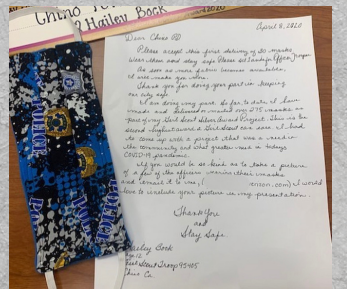 Chino
Hailey Bock
April 8, 2020
Dear Chino PD
Please accept this first delivery of 20 masks
Wear them and stay safe Please
As soon as more fabric becomes available,
I will make you more.
Thank you for doing your part in keeping
our city safe
I am doing my part. So far to date, I have
made and delivered masks over 275 masks as
part of my Girl Scout Silver Award Project. This is the
second highest award a Girl Scout can earn. I had
to come up with a project that was a need in
the community and what greater need in todays
COVID-19 pandemic.
If you would be so kind as to take a picture
of a few of the officers wearing their masks
and email it to me, ( .com) I would
love to include your picture in my presentation.
Thank You
and
Stay Safe
Hailey Bock
age 12
Girl Scout Troop
Chino Ca
POLICE